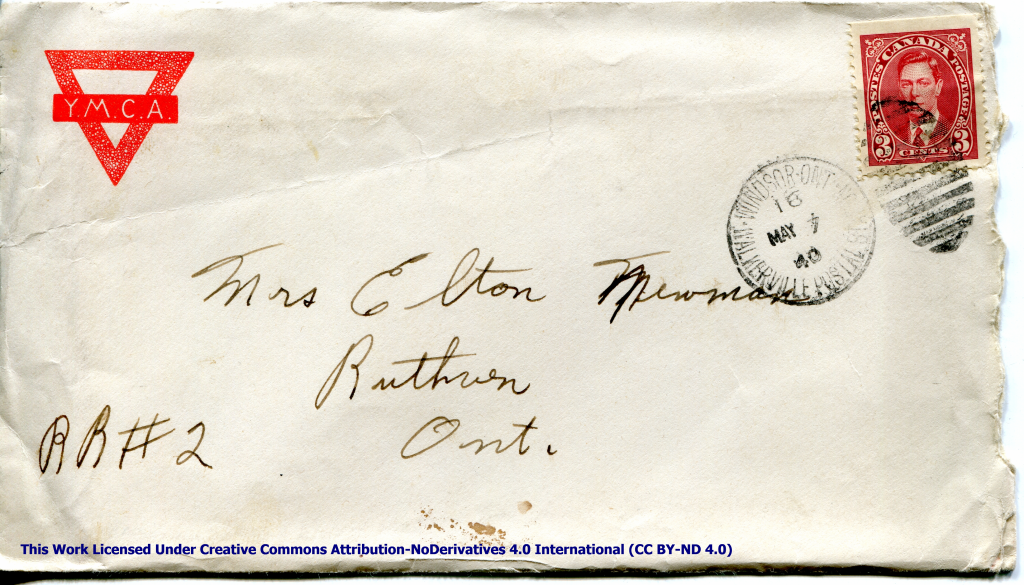 Y.M.C.A.
POSTES CANADA POSTAGE
3 CENTS 3
WINDSOR·ONT
18
MAY 7
40
WALKERVILLE POSTAL
Mrs Elton Newman
Ruthven
RR#2 Ont.
This Work Licensed Under Creative Commons Attribution-NoDerivatives 4.0 International (CC BY-ND 4.0)